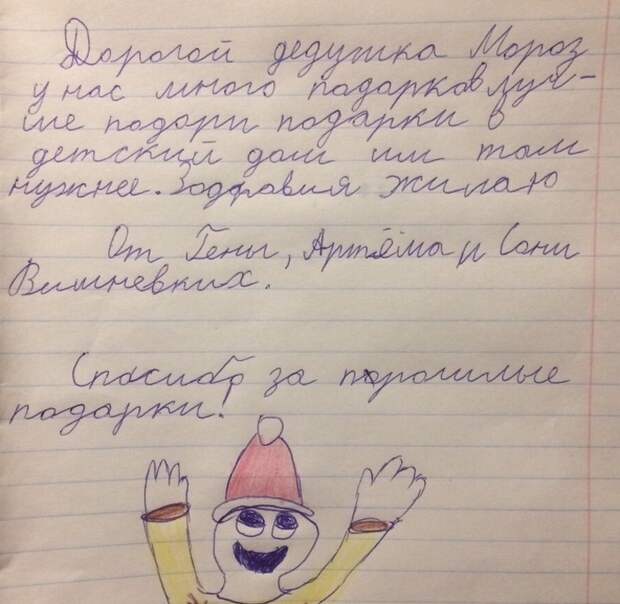 Дорогой дедушка Мороз
у нас много подарков луч-
ше подари подарки в
детский дом им там
нужнее. Здоровия жилаю
От Гены, Артёма и Сони
Вишневких.
Спосибо за порошлые
подарки!